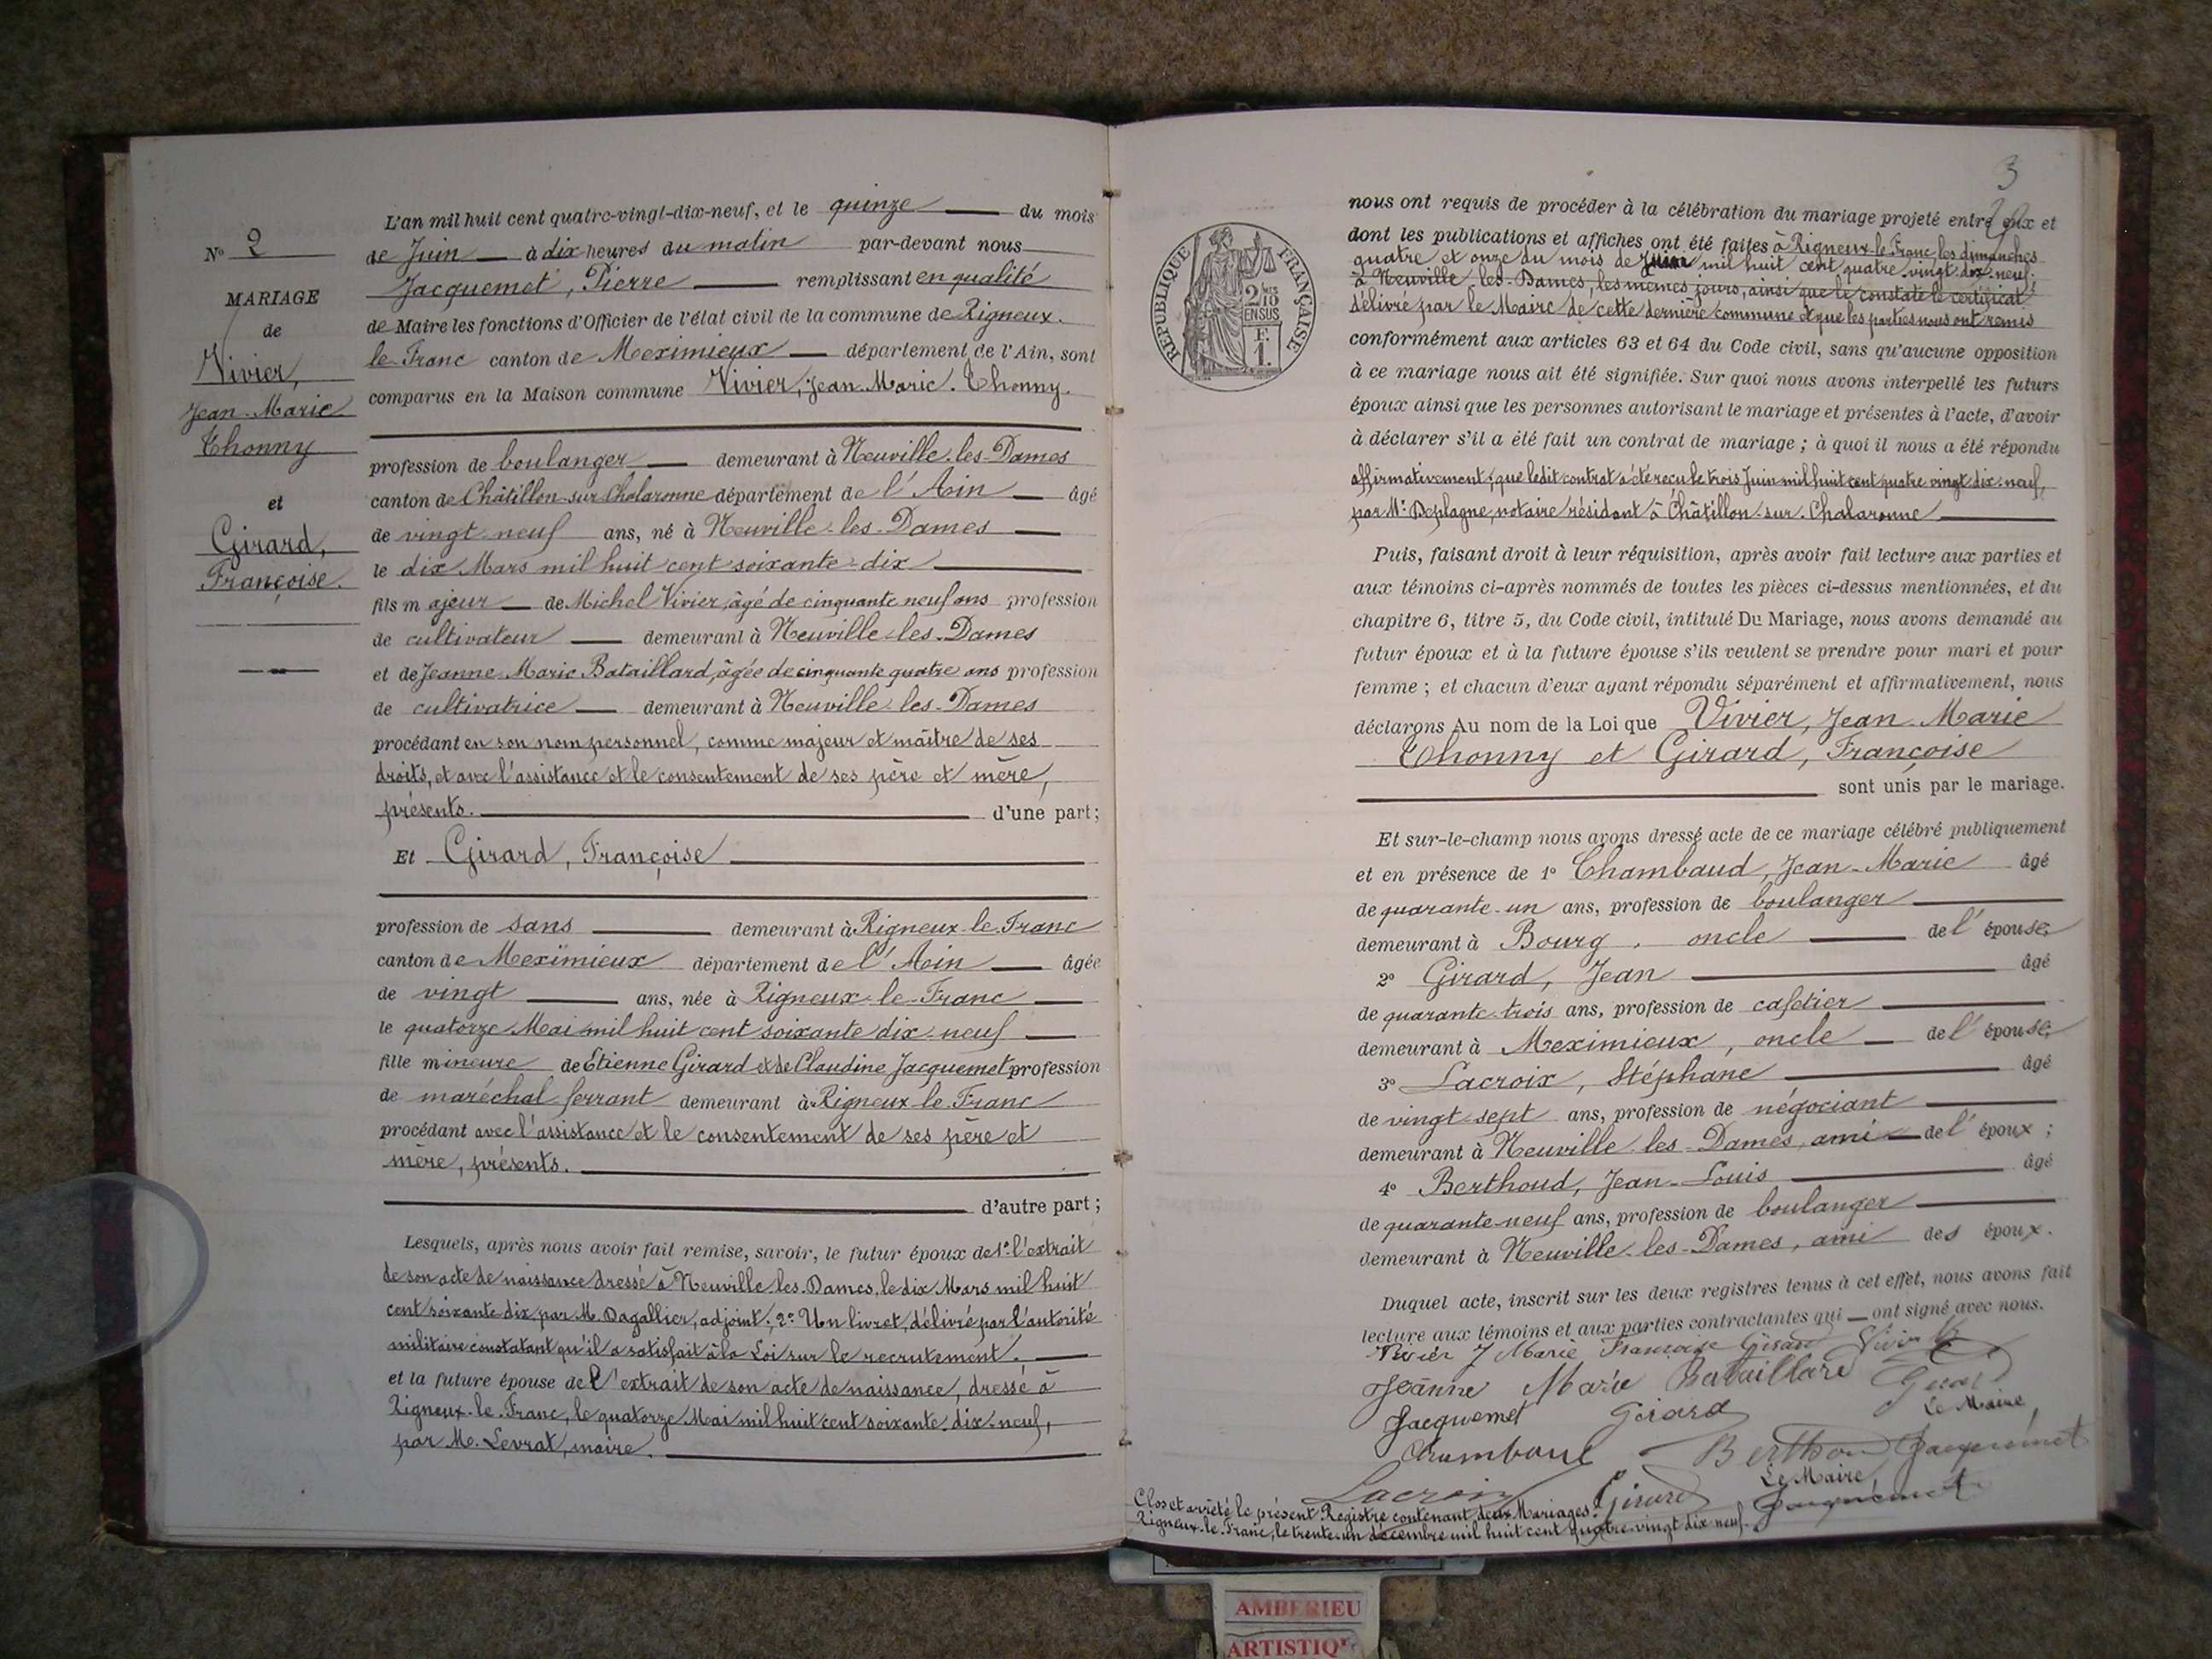 N° 2
MARIAGE
de
Vivier,
Jean-Marie
Thonny
et
Girard,
Françoise.
L'an mil huit cent quatre-vingt-dix-neuf, et le quinze du mois
de Juin à dix heures du matin par-devant nous
Jacquemet, Pierre remplissant en qualité
de Maire les fonctions d'Officier de l'état civil de la commune de Rigneux-
le-Franc canton de Meximieux département de l'Ain, sont
comparus en la Maison commune Vivier, Jean-Marie-Thonny.
profession de boulanger demeurant à Neuville-les-Dames
canton de Châtillon-sur-Chalaronne département de l'Ain âgé
de vingt-neuf ans, né à Neuville-les-Dames
le dix Mars mil huit cent soixante-dix
fils majeur de Michel Vivier, âgé de cinquante neuf ans profession
de cultivateur demeurant à Neuville-les-Dames
et de Jeanne-Marie Bataillard, âgée de cinquante quatre ans profession
de cultivatrice demeurant à Neuville-les-Dames
procédant en son nom personnel, comme majeur et maître de ses
droits, et avec l'assistance et le consentement de ses père et mère,
présents. d'une part;
Et Girard, Françoise
profession de sans demeurant à Rigneux-le-Franc
canton de Meximieux département de l'Ain âgée
de vingt ans, née à Rigneux-le-Franc
le quatorze Mai mil huit cent soixante dix-neuf
fille mineure de Etienne Girard et de Claudine Jacquemet profession
de maréchal-ferrant demeurant à Rigneux-le-Franc
procédant avec l'assistance et le consentement de ses père et
mère, présents.
d'autre part;
Lesquels, après nous avoir fait remise, savoir, le futur époux de 1° l'extrait
de son acte de naissance dressé à Neuville-les-Dames, le dix Mars mil huit
cent soixante dix, par M. Dagallier, adjoint; 2° Un livret, délivré par l'autorité
militaire constatant qu'il a satisfait à la Loi sur le recrutement.
et la future épouse de l'extrait de son acte de naissance, dressé à
Rigneux-le-Franc, le quatorze Mai mil huit cent soixante-dix-neuf,
par M. Levrat, maire.
3
RÉPUBLIQUE FRANÇAISE
2/10
EN SUS
F.
1.
nous ont requis de procéder à la célébration du mariage projeté entre eux et
dont les publications et affiches ont été faites à Rigneux-le-Franc, les dimanches
quatre et onze du mois de Juin mil huit cent quatre-vingt-dix-neuf.
à Neuville-les-Dames, les mêmes jours, ainsi que le constate le certificat
délivré par le Maire de cette dernière commune et que les parties nous ont remis
conformément aux articles 63 et 64 du Code civil, sans qu'aucune opposition
à ce mariage nous ait été signifiée. Sur quoi nous avons interpellé les futurs
époux ainsi que les personnes autorisant le mariage et présentes à l'acte, d'avoir
à déclarer s'il a été fait un contrat de mariage; à quoi il nous a été répondu
affirmativement; que ledit contrat a été reçu le trois Juin mil huit cent quatre vingt dix-neuf,
par Me Deplagne, notaire résidant à Châtillon-sur-Chalaronne
Puis, faisant droit à leur réquisition, après avoir fait lecture aux parties et
aux témoins ci-après nommés de toutes les pièces ci-dessus mentionnées, et du
chapitre 6, titre 5, du Code civil, intitulé Du Mariage, nous avons demandé au
futur époux et à la future épouse s'ils veulent se prendre pour mari et pour
femme; et chacun d'eux ayant répondu séparément et affirmativement, nous
déclarons Au nom de la Loi que Vivier, Jean-Marie
Thonny et Girard, Françoise
sont unis par le mariage.
Et sur-le-champ nous avons dressé acte de ce mariage célébré publiquement
et en présence de 1° Chambaud, Jean-Marie âgé
de quarante-un ans, profession de boulanger
demeurant à Bourg, oncle de l'épouse;
2° Girard, Jean âgé
de quarante-trois ans, profession de cafetier
demeurant à Meximieux, oncle de l'épouse;
3° Lacroix, Stéphane âgé
de vingt-sept ans, profession de négociant
demeurant à Neuville-les-Dames, ami de l'époux;
4° Berthoud, Jean-Louis âgé
de quarante-neuf ans, profession de boulanger
demeurant à Neuville-les-Dames, ami des époux.
Duquel acte, inscrit sur les deux registres tenus à cet effet, nous avons fait
lecture aux témoins et aux parties contractantes qui ont signé avec nous.
Vivier J Marie Françoise Girard Vivier
Jeanne Marie Bataillard Girard
Jacquemet Girard Le Maire,
Chambaud Berthoud Jacquemet
Lacroix Girard Le Maire,
Jacquemet
Clos et arrêté le présent Registre contenant deux Mariages.
Rigneux-le-Franc, le trente-un décembre mil huit cent quatre-vingt dix neuf.
AMBERIEU
ARTISTIQ